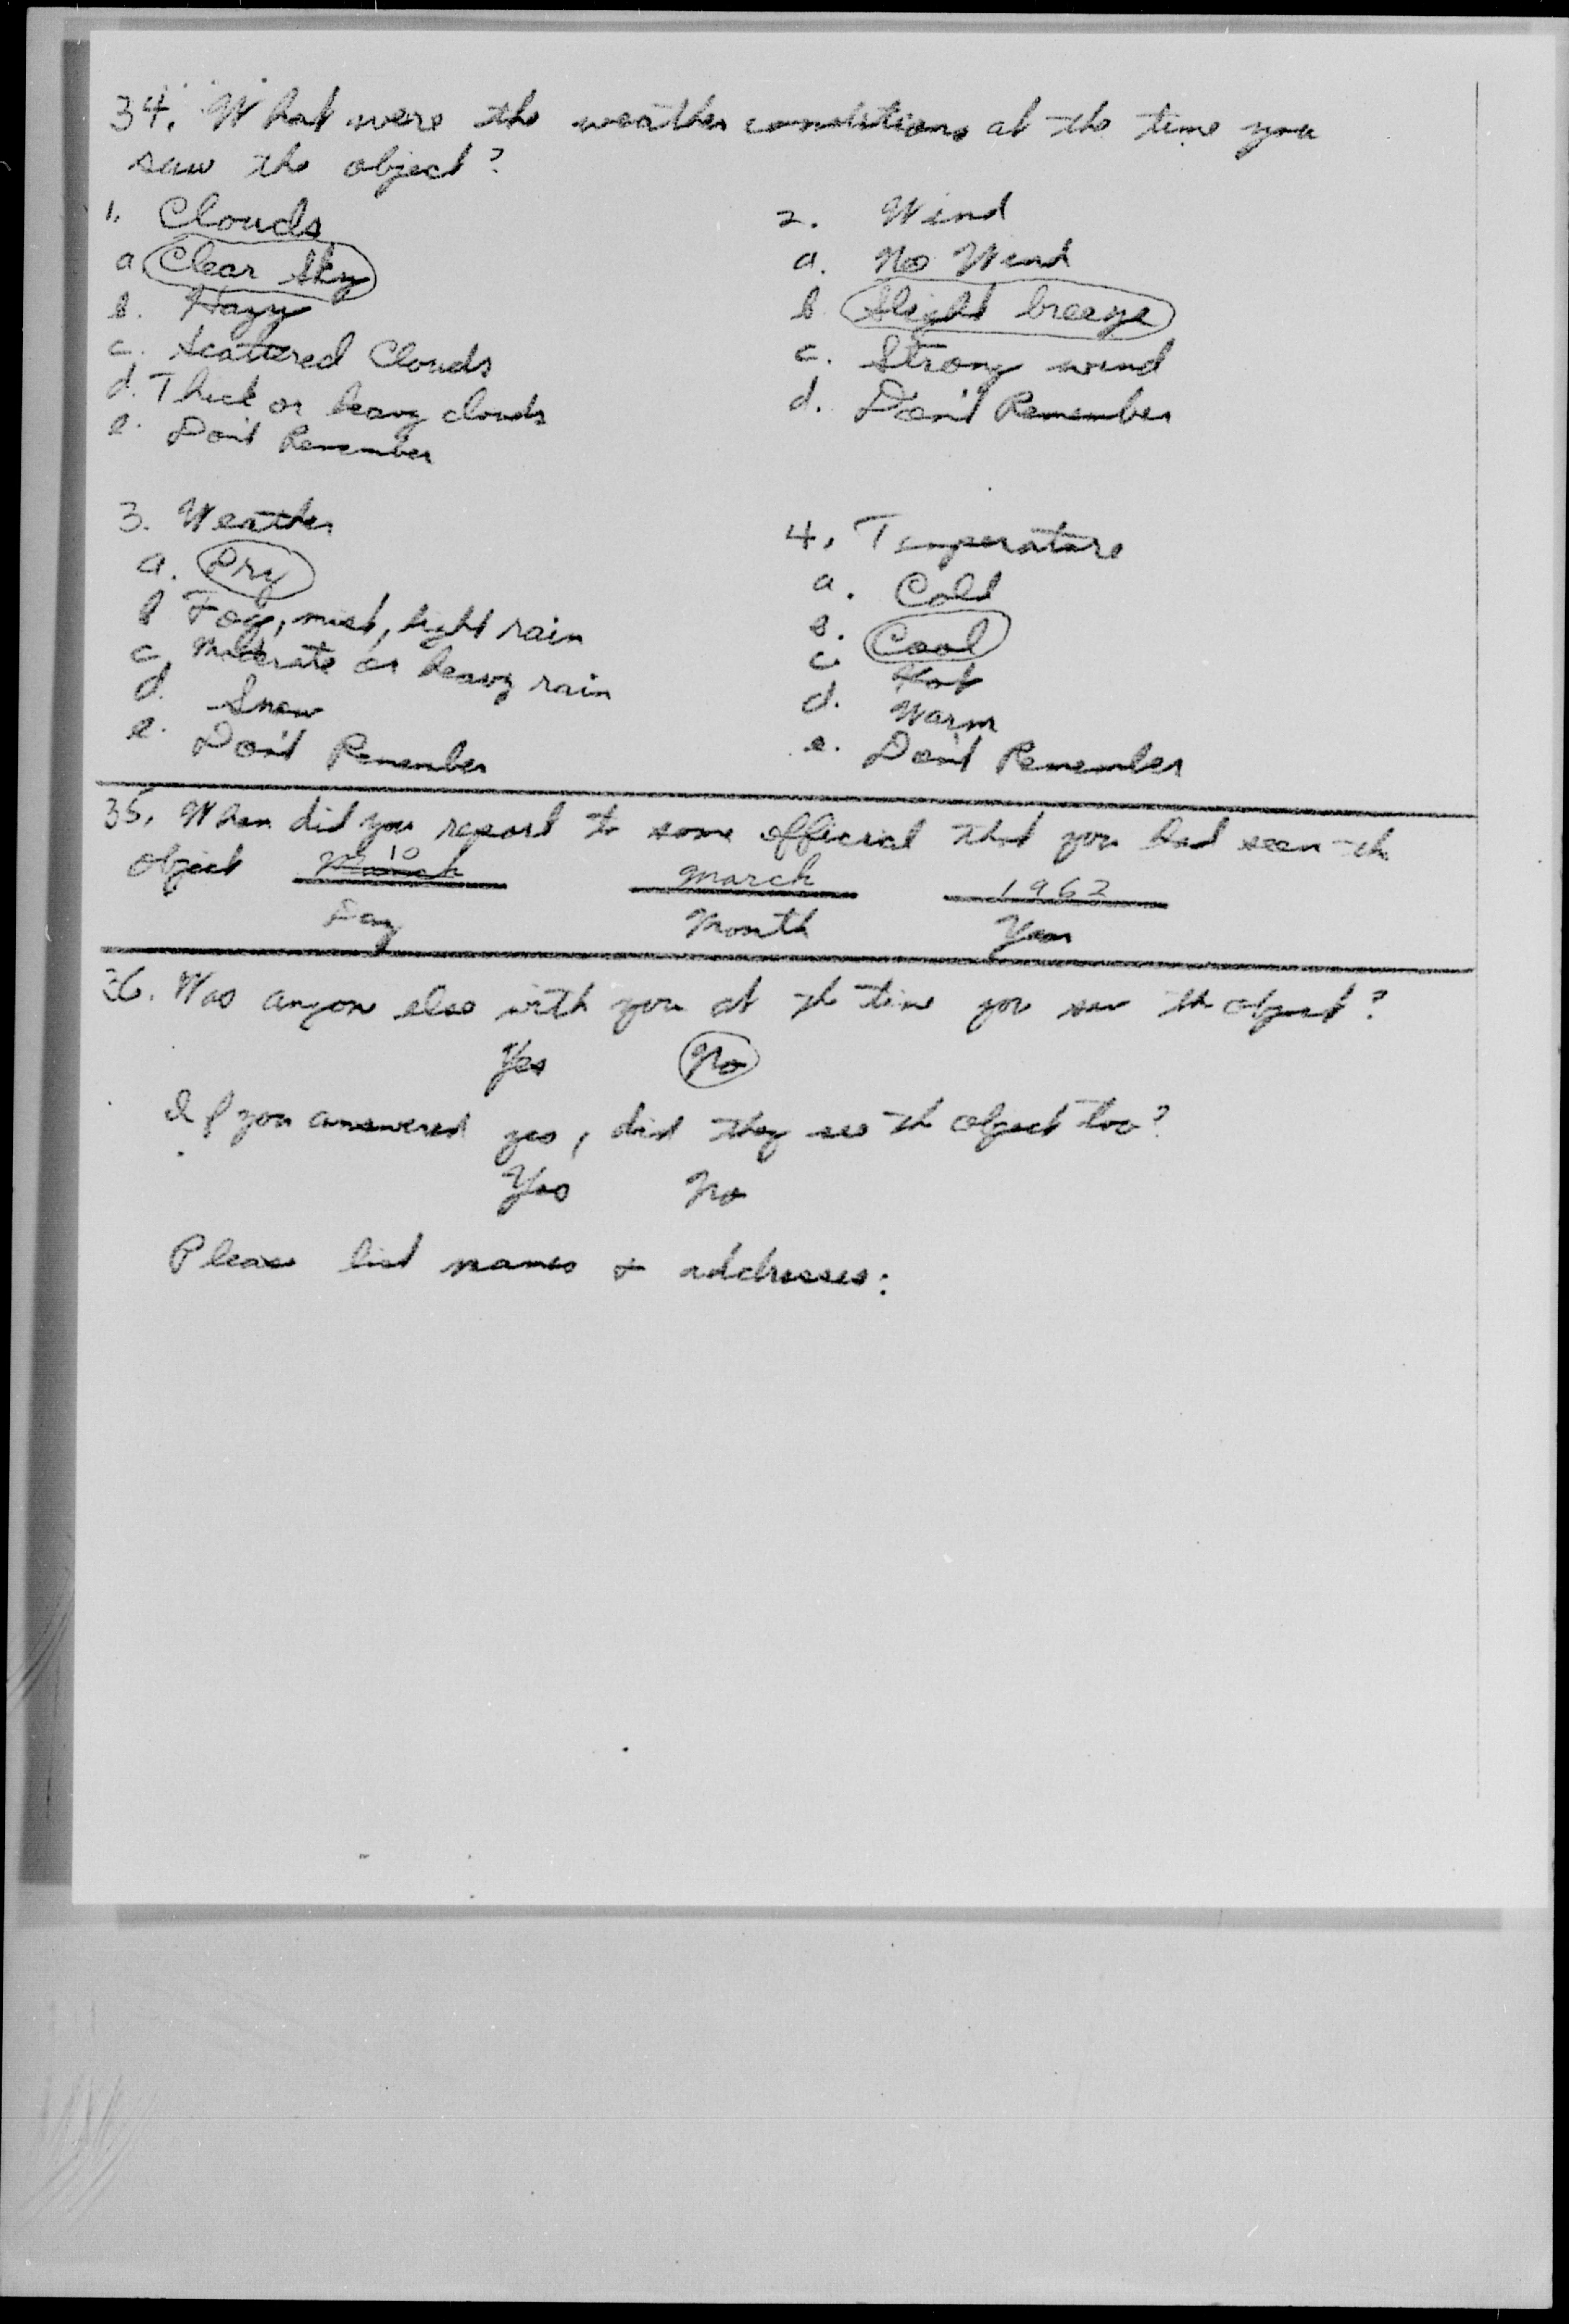 34. What were the weather conditions at the time you
saw the object?
1. Clouds
a. Clear Sky
b. Hazy
c. Scattered Clouds
d. Thick or heavy clouds
e. Don't Remember
2. Wind
a. No Wind
b Slight breeze
c. Strong wind
d. Don't Remember
3. Weather
a. Dry
b Fog, mist, light rain
c. Moderate or heavy rain
d. Snow
e. Don't Remember
4. Temperature
a. Cold
b. Cool
c. Hot
d. Warm
e. Don't Remember
35. When did you report to some official that you had seen the
object March 10 March 1962
Day Month Year
36. Was anyone else with you at the time you saw the object?
Yes No
If you answered yes, did they see the object too?
Yes No
Please list names & addresses: